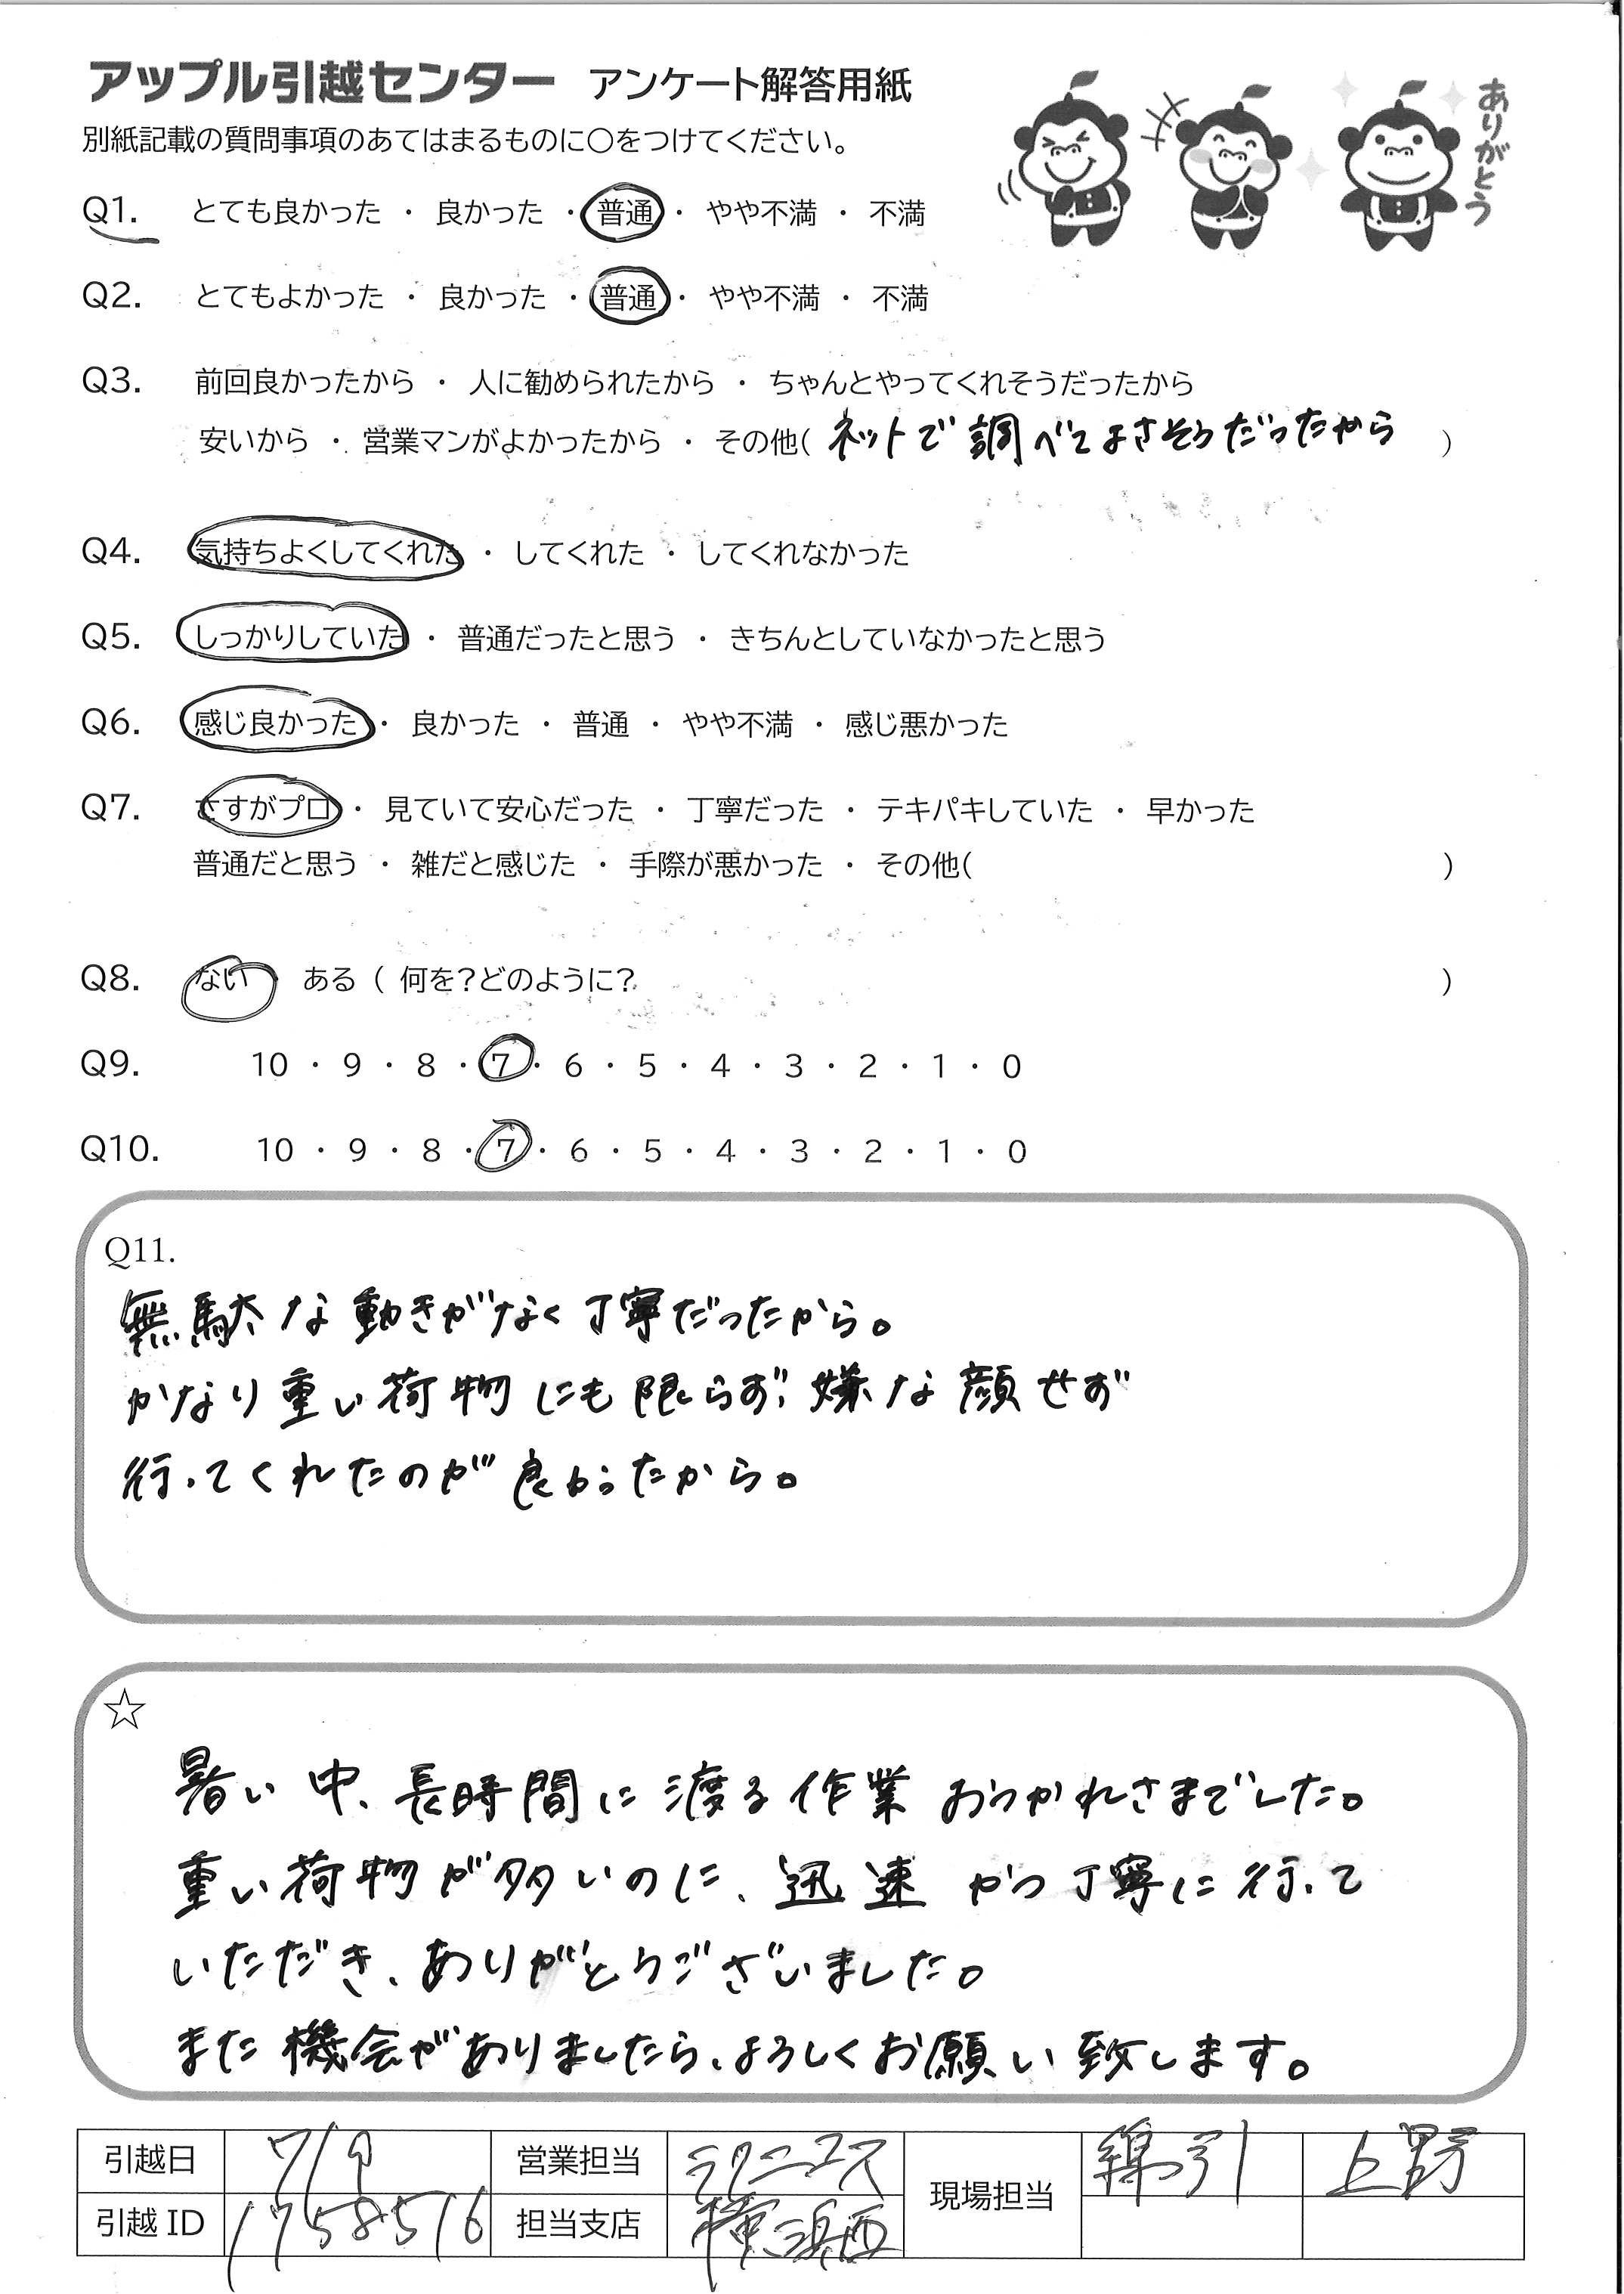 アップル引越センター アンケート解答用紙
ありがとう
別紙記載の質問事項のあてはまるものに○をつけてください。
Q1. とても良かった ・ 良かった ・ 普通 ・ やや不満 ・ 不満
Q2. とてもよかった ・ 良かった ・ 普通 ・ やや不満 ・ 不満
Q3. 前回良かったから ・ 人に勧められたから ・ ちゃんとやってくれそうだったから
安いから ・ 営業マンがよかったから ・ その他( ネットで調べてよさそうだったから )
Q4. 気持ちよくしてくれた ・ してくれた ・ してくれなかった
Q5. しっかりしていた ・ 普通だったと思う ・ きちんとしていなかったと思う
Q6. 感じ良かった ・ 良かった ・ 普通 ・ やや不満 ・ 感じ悪かった
Q7. さすがプロ ・ 見ていて安心だった ・ 丁寧だった ・ テキパキしていた ・ 早かった
普通だと思う ・ 雑だと感じた ・ 手際が悪かった ・ その他( )
Q8. ない ある ( 何を?どのように? )
Q9. 10 ・ 9 ・ 8 ・ 7 ・ 6 ・ 5 ・ 4 ・ 3 ・ 2 ・ 1 ・ 0
Q10. 10 ・ 9 ・ 8 ・ 7 ・ 6 ・ 5 ・ 4 ・ 3 ・ 2 ・ 1 ・ 0
Q11.
無駄な動きがなく丁寧だったから。
かなり重い荷物にも限らず、嫌な顔せず
行ってくれたのが良かったから。
☆
暑い中、長時間に渡る作業おつかれさまでした。
重い荷物が多いのに、迅速かつ丁寧に行って
いただき、ありがとうございました。
また機会がありましたら、よろしくお願い致します。
引越日 7/9 営業担当 ラクニコス 現場担当 綿引 上野
引越ID 1758516 担当支店 横浜西